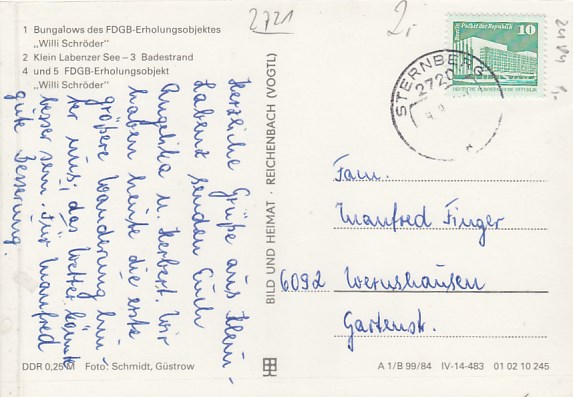 2721
2,-
1 Bungalows des FDGB-Erholungsobjektes
„Willi Schröder”
2 Klein Labenzer See – 3 Badestrand
4 und 5 FDGB-Erholungsobjekt
„Willi Schröder”
10
STERNBERG
2720
Herzliche Grüße aus Klein-
Labenz senden Euch
Angelika u. Herbert. Wir
haben heute die erste
größere Wanderung hin-
ter uns; das Wetter könnte
besser sein. Für Manfred
gute Besserung.
BILD UND HEIMAT · REICHENBACH (VOGTL)
Fam.
Manfred Finger
6092 Wernshausen
Gartenstr.
DDR 0,25 M Foto: Schmidt, Güstrow
A 1/B 99/84 IV-14-483 01 02 10 245